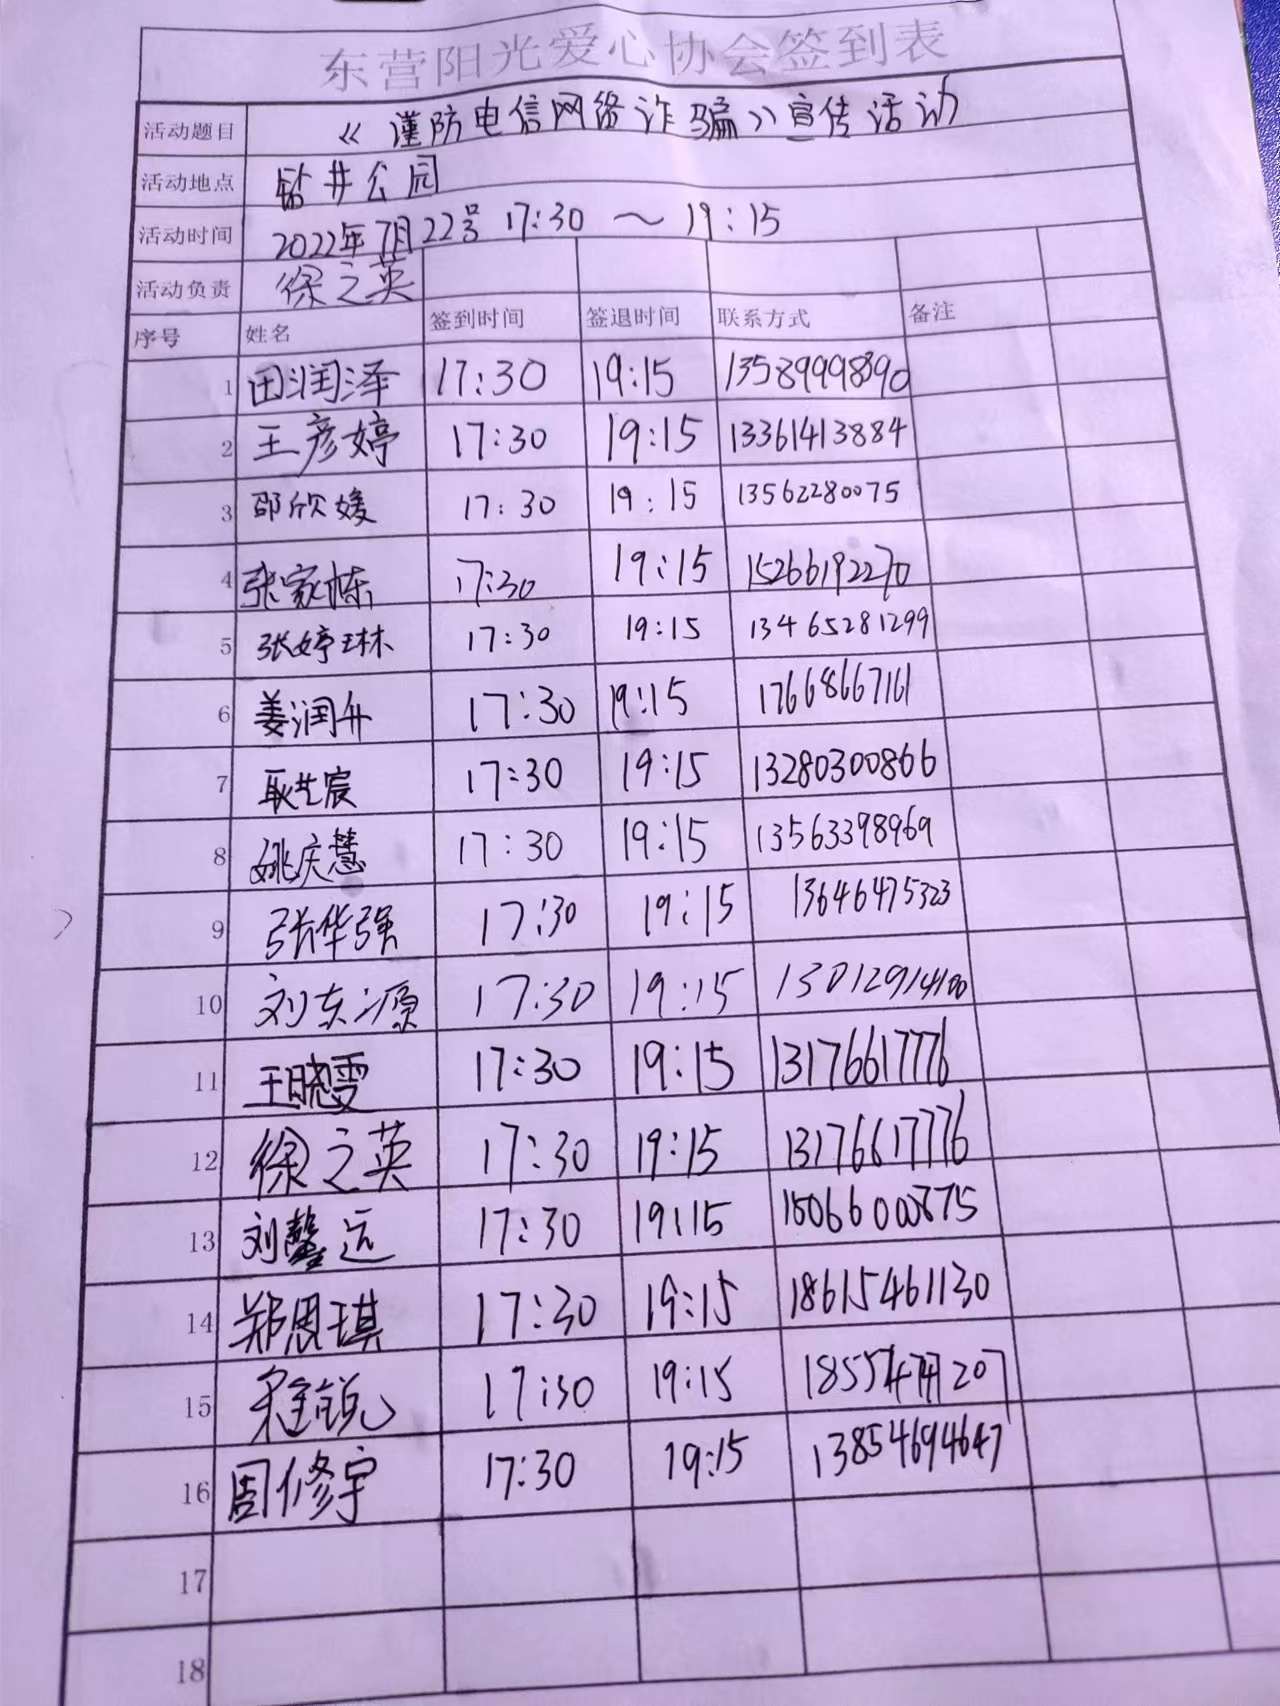 东营阳光爱心协会签到表
活动题目 《谨防电信网络诈骗》宣传活动
活动地点 钻井公园
活动时间 2022年7月22号 17:30 ～ 19:15
活动负责 徐之英
序号 姓名 签到时间 签退时间 联系方式 备注
1 田润泽 17:30 19:15 13589998390
2 王彦婷 17:30 19:15 13361413884
3 邵欣媛 17:30 19:15 13562280075
4 张家栋 17:30 19:15 15266192270
5 张婷琳 17:30 19:15 13465281299
6 姜润升 17:30 19:15 17668667161
7 耿艺宸 17:30 19:15 13280300866
8 姚庆慧 17:30 19:15 13563398969
9 张华强 17:30 19:15 13646475323
10 刘东源 17:30 19:15
11 王晓雯 17:30 19:15 13176617776
12 徐之英 17:30 19:15 13176617776
13 刘馨远 17:30 19:15
14 郑恩琪 17:30 19:15 18615461130
15 17:30 19:15
16 周修宇 17:30 19:15 13854694647
17
18